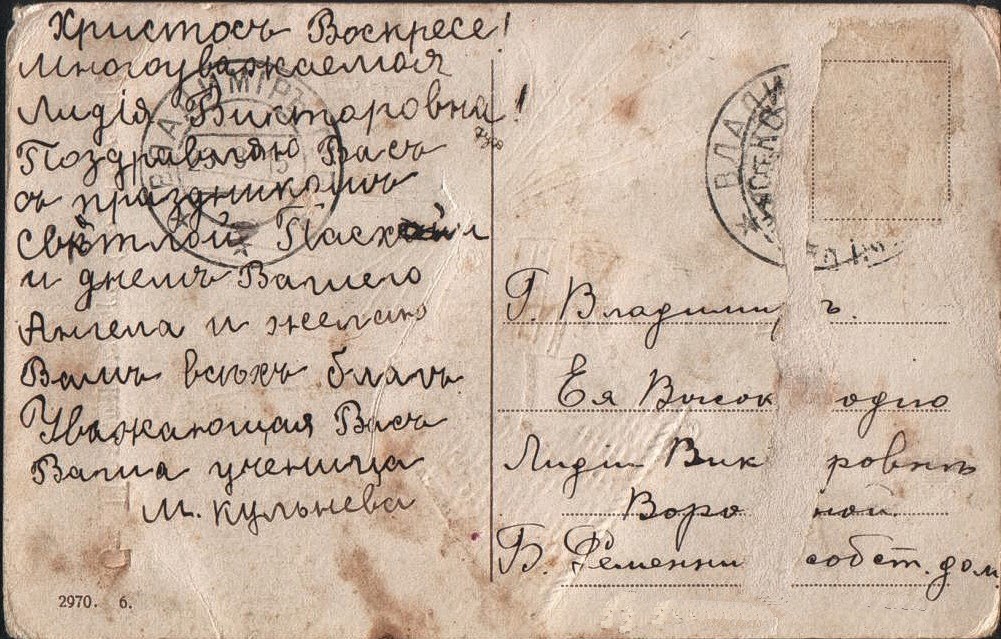 Христосъ Воскресе!
Многоуважаемая
Лидія Викторовна!
Поздравляю Васъ
съ праздникомъ
Свѣтлой Пасхи
и днемъ Вашего
Ангела и желаю
Вамъ всѣхъ благъ
Уважающая Васъ
Ваша ученица
М. Кульнева
2970. 6.
ВЛАДИМІРЪ
ВЛАДИ
Г. Владими ъ.
Ея Высок одію
Лидіи Вик ровнѣ
Воро ной.
Б. Ременни собст. дом